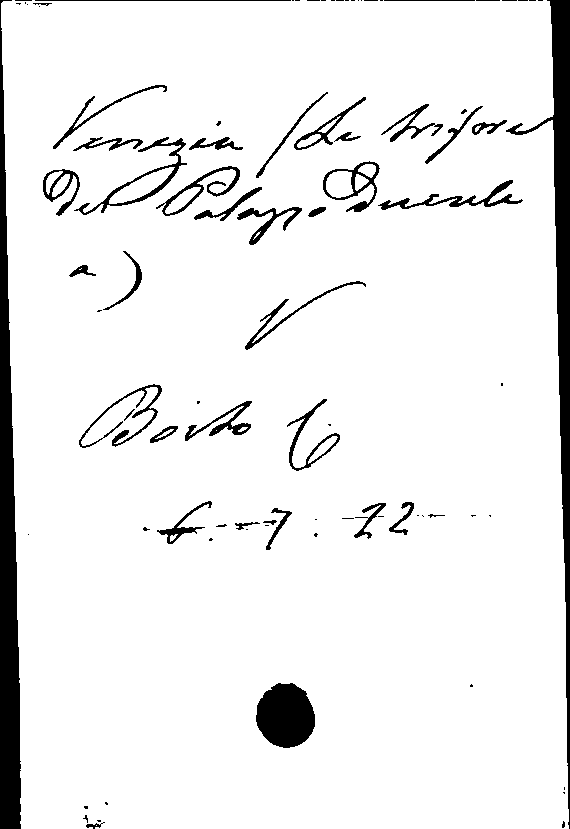 Venezia / Le trifore
del Palazzo Ducale
a)
V
Boito C.
6. 7. 12